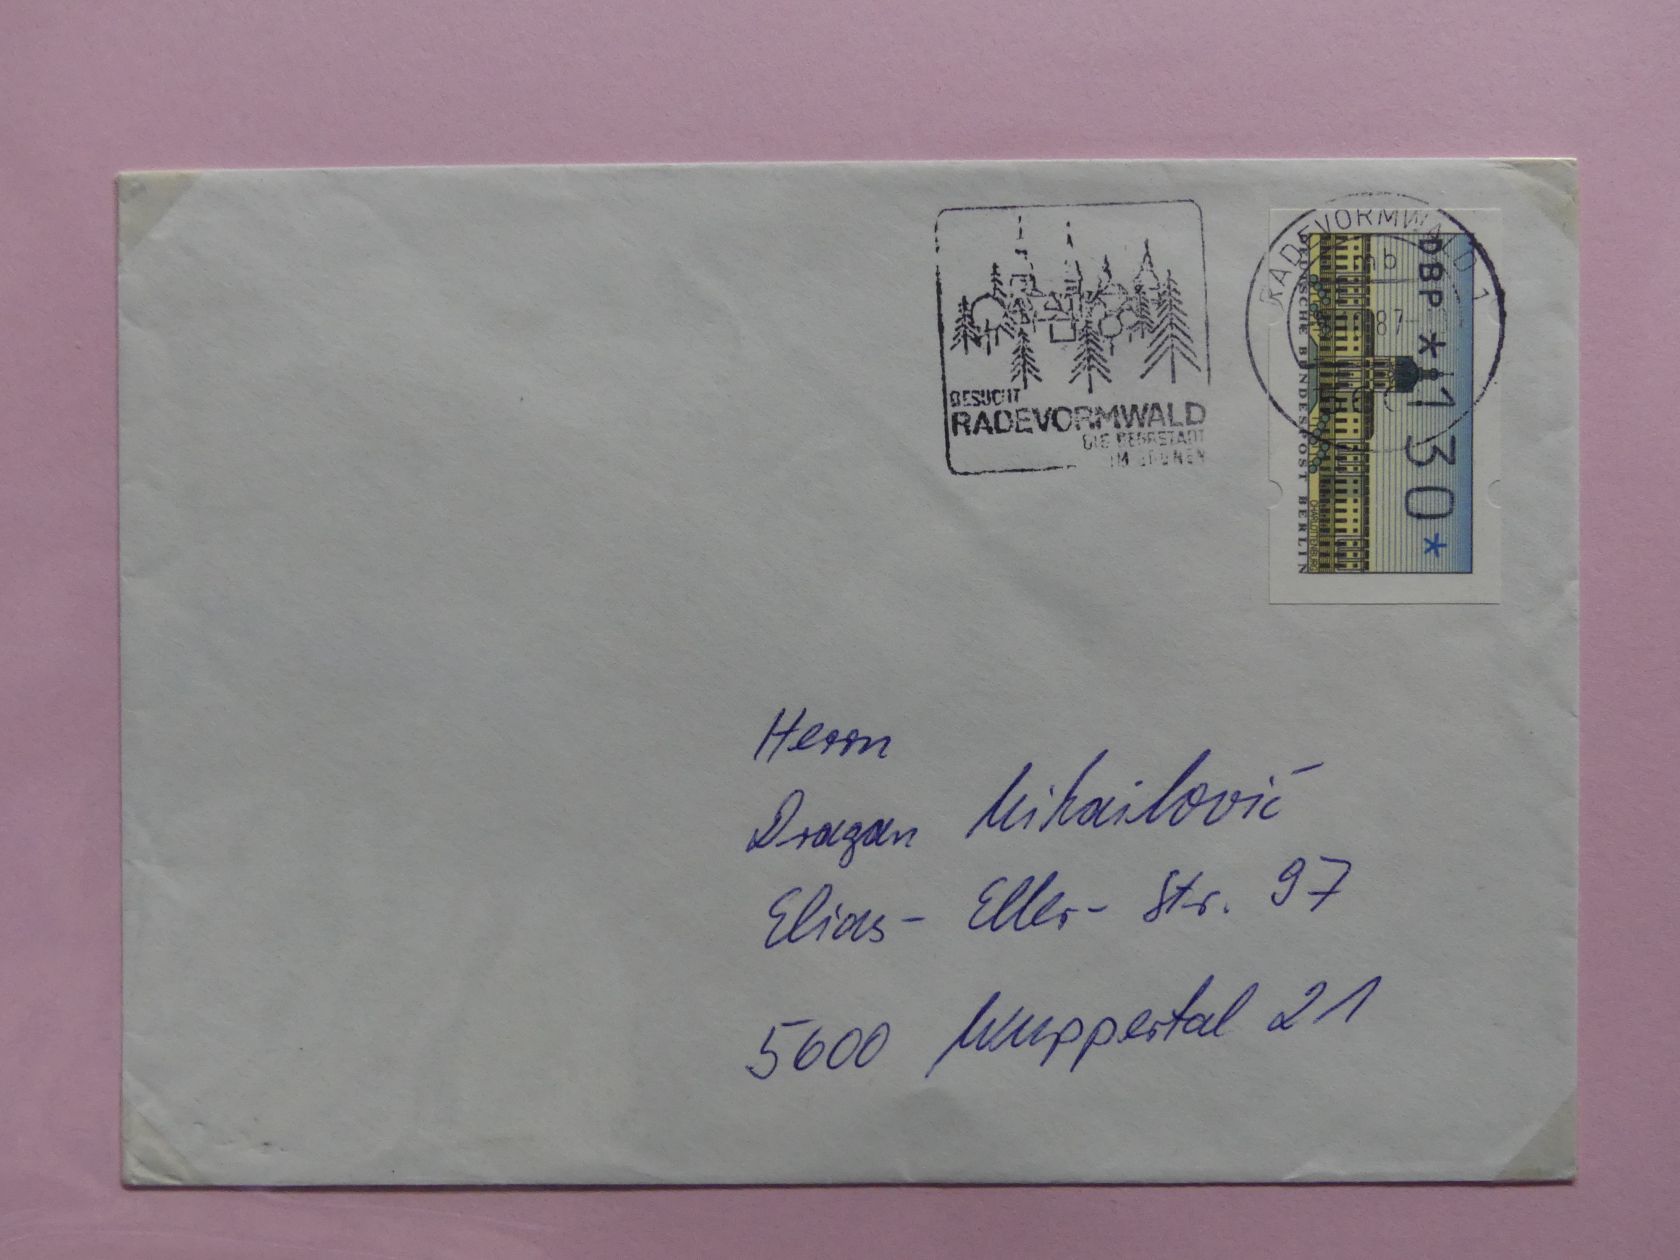 BESUCHT
RADEVORMWALD
DIE BERGSTADT
IM GRÜNEN
RADEVORMWALD 1
mb
87-
DBP *130*
DEUTSCHE BUNDESPOST BERLIN
CHARLOTTENBURG
Herrn
Dragan Mihailović
Elias-Eller-Str. 97
5600 Wuppertal 21